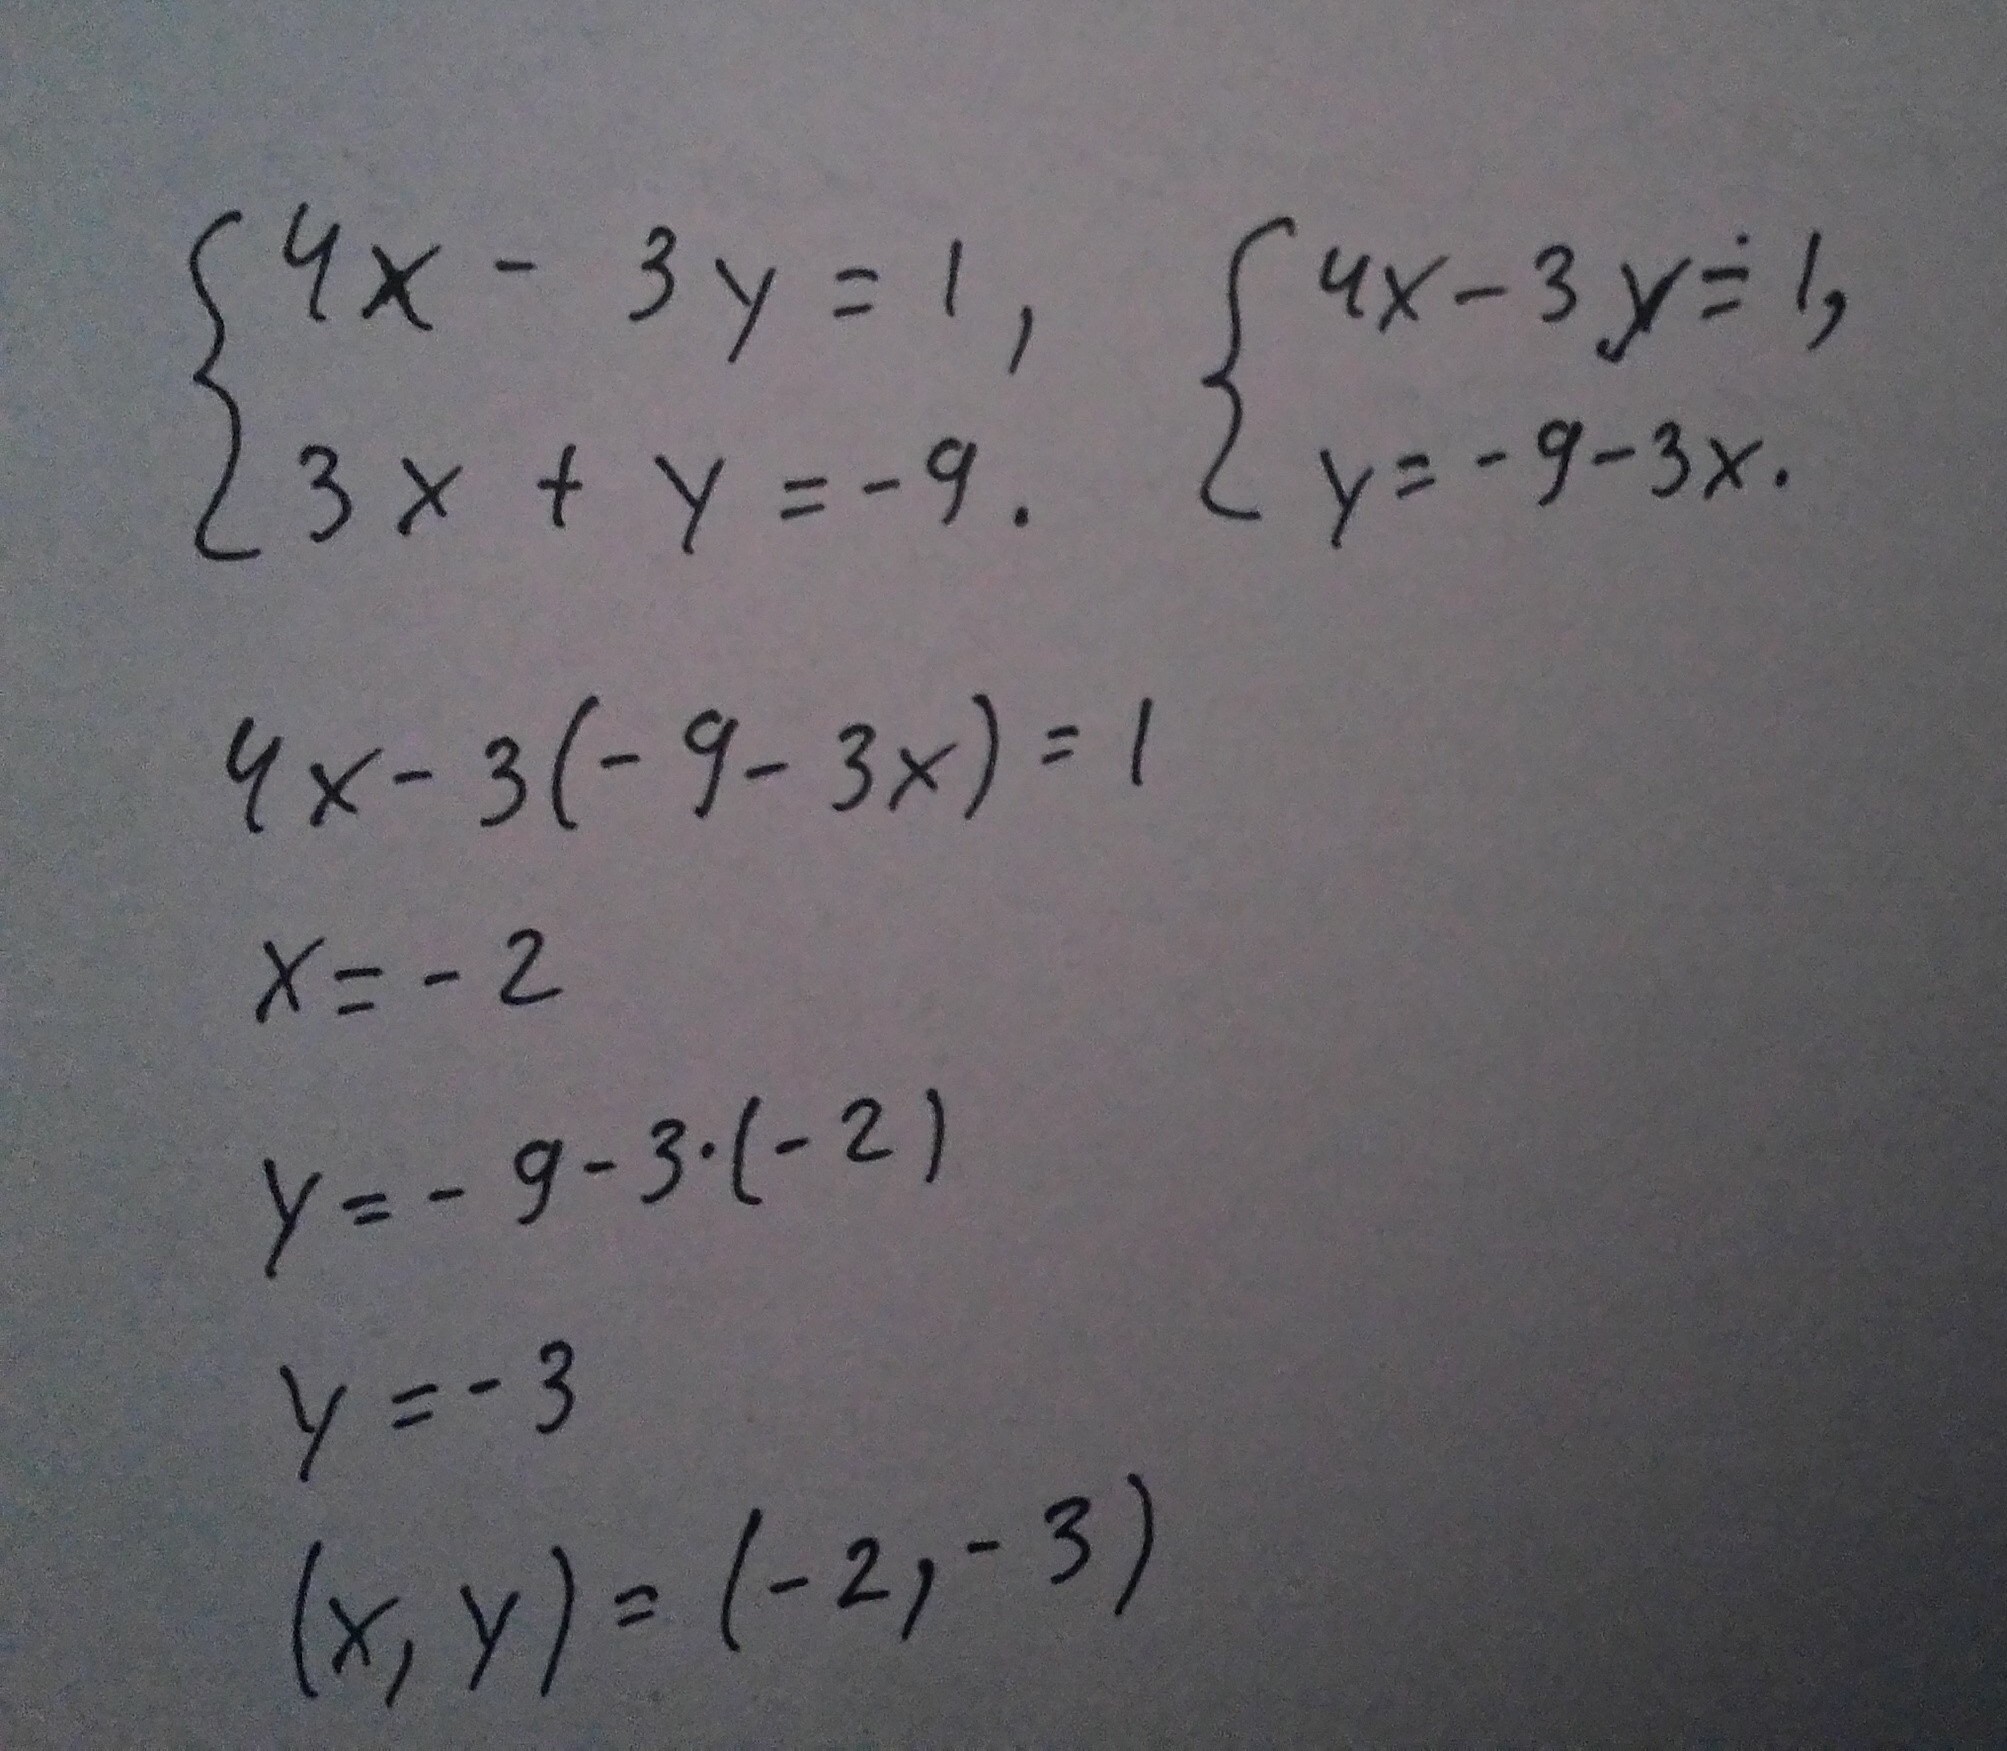 {4x - 3y = 1, {4x - 3y = 1,
{3x + y = -9. {y = -9 - 3x.
4x - 3(-9 - 3x) = 1
x = -2
y = -9 - 3·(-2)
y = -3
(x, y) = (-2, -3)